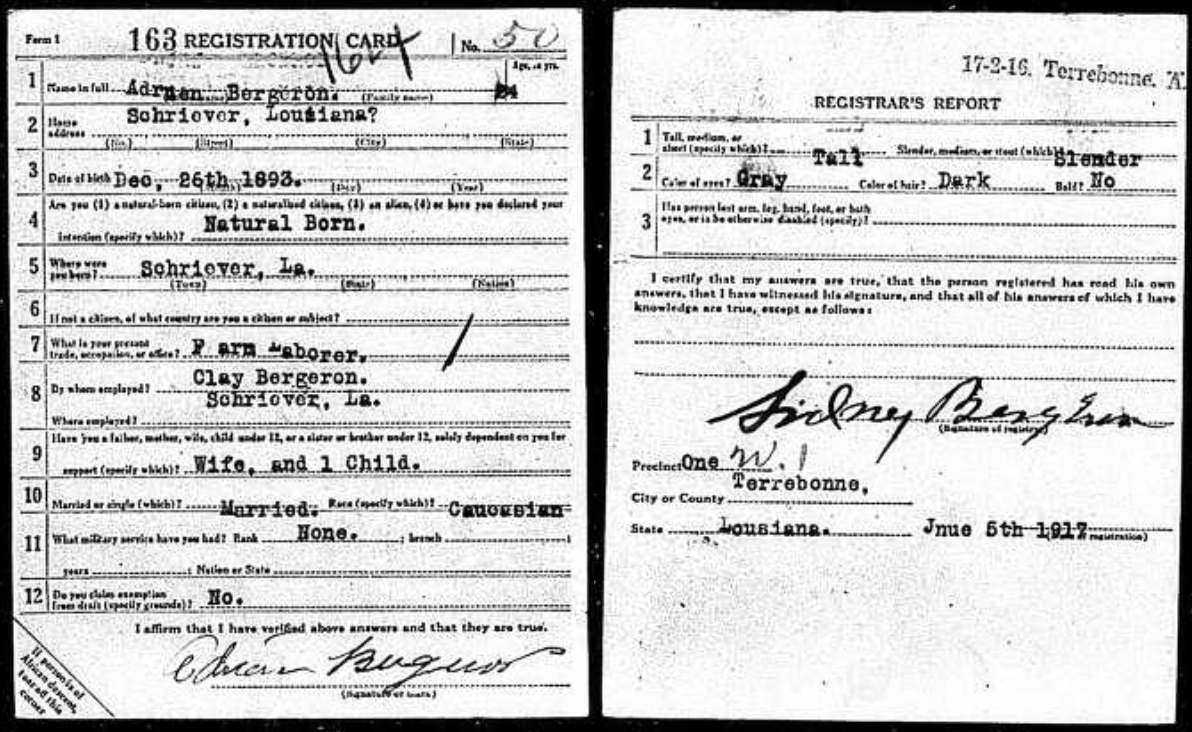 Form 1 163 REGISTRATION CARD No. 50
1624
Age, in yrs.
1 Name in full Adrien Bergeron. (Family name) 24
Schriever, Lousiana?
2 Home address
(No.) (Street) (City) (State)
3 Date of birth Dec, 26th 1893. (Day) (Year)
4 Are you (1) a natural-born citizen, (2) a naturalized citizen, (3) an alien, (4) or have you declared your
intention (specify which)? Natural Born.
5 Where were you born? Schriever, La.
(Town) (State) (Nation)
6 If not a citizen, of what country are you a citizen or subject?
7 What is your present trade, occupation, or office? F arm Laborer.
8 By whom employed? Clay Bergeron.
Schriever, La.
Where employed?
9 Have you a father, mother, wife, child under 12, or a sister or brother under 12, solely dependent on you for
support (specify which)? Wife, and 1 Child.
10 Married or single (which)? Married. Race (specify which)? Caucasian
11 What military service have you had? Rank None. ; branch ;
years ; Nation or State
12 Do you claim exemption from draft (specify grounds)? No.
I affirm that I have verified above answers and that they are true.
Adrien Bergeron
(Signature or mark)
If person is of
African descent,
tear off this
corner
17-2-16. Terrebonne, A.
REGISTRAR'S REPORT
1 Tall, medium, or short (specify which)? Tall Slender, medium, or stout (which)? Slender
2 Color of eyes? Gray Color of hair? Dark Bald? No
3 Has person lost arm, leg, hand, foot, or both
eyes, or is he otherwise disabled (specify)?
I certify that my answers are true, that the person registered has read his own
answers, that I have witnessed his signature, and that all of his answers of which I have
knowledge are true, except as follows:
Sidney Bergeron
(Signature of registrar)
Precinct One W. 1
Terrebonne,
City or County
State Lousiana. Jnue 5th 1917
registration)